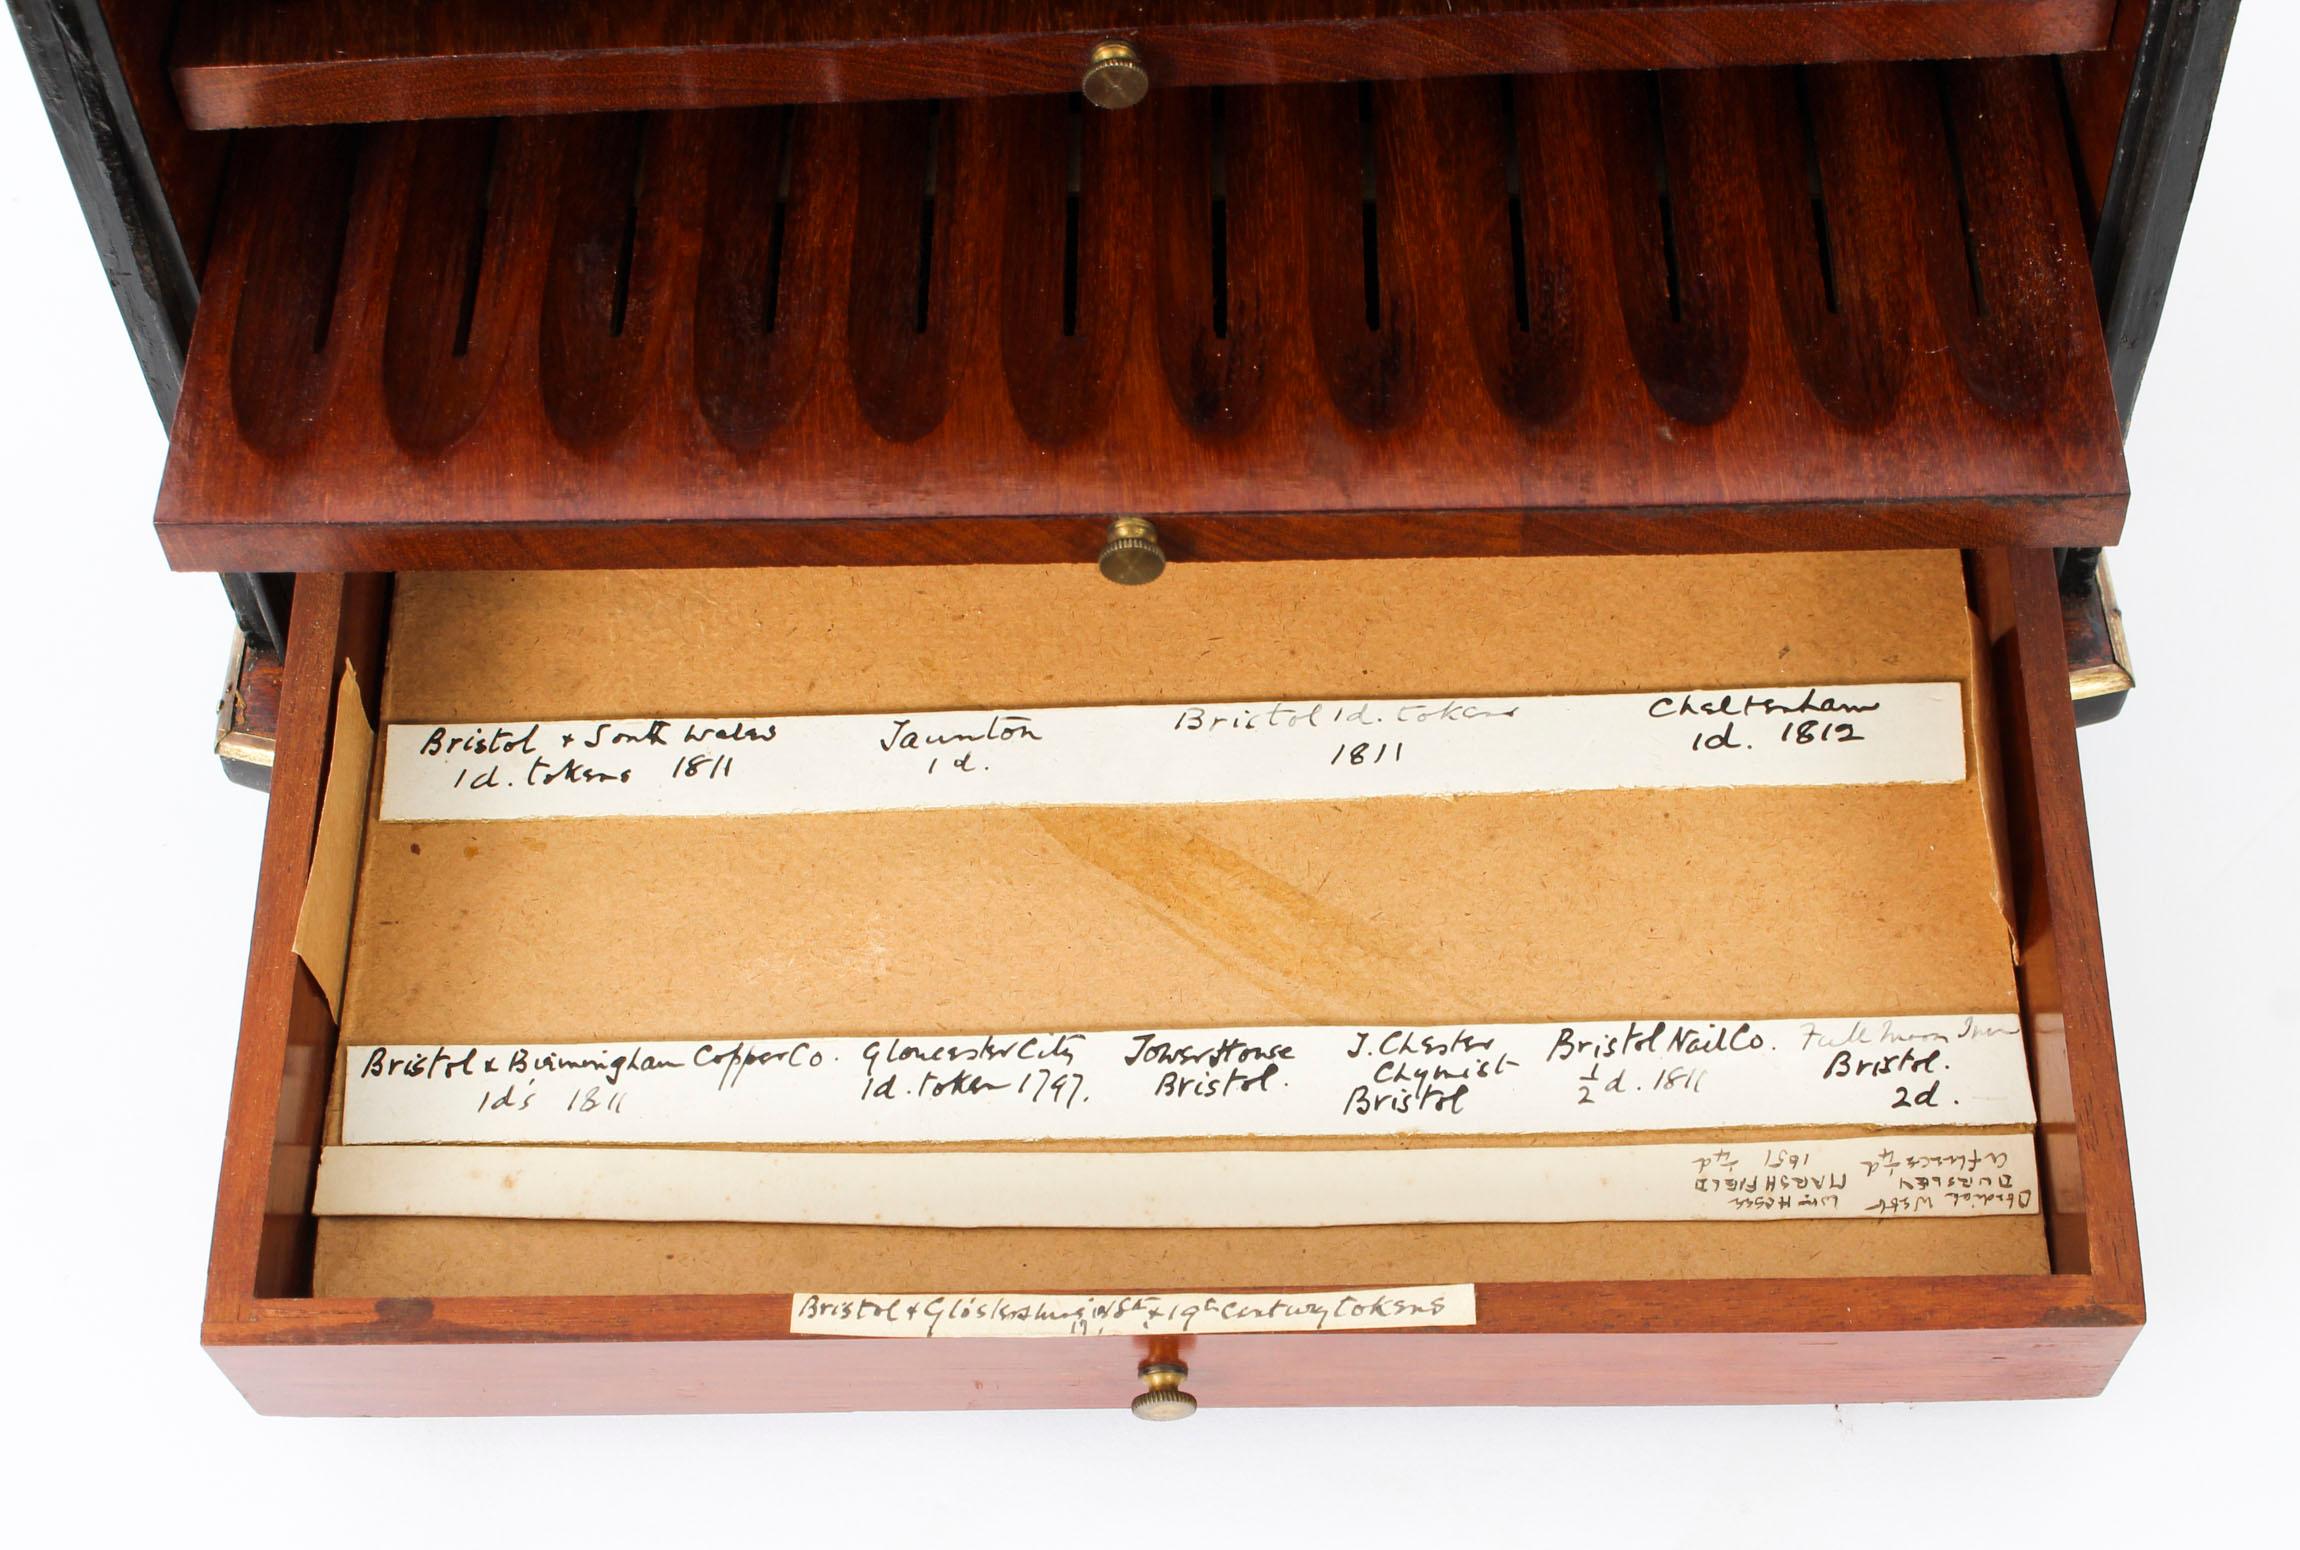 Bristol & South Wales
1d. tokens 1811
Taunton
1d.
Bristol 1d. tokens
1811
Cheltenham
1d. 1812
Bristol & Birmingham Copper Co.
1d's 1811
Gloucester City
1d. token 1797.
Tower House
Bristol.
J. Chester
Chymist
Bristol
Bristol Nail Co.
½d. 1811
Full Moon Inn
Bristol.
2d.
Obediah Webb
DURSLEY
¼d
Wm Hesse
MARSHFIELD
1651 ¼d
Bristol & Glostershire 18th & 19th Century tokens
17